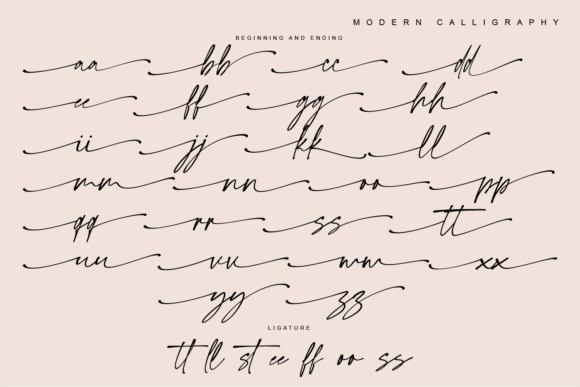 MODERN CALLIGRAPHY
BEGINNING AND ENDING
aa bb cc dd
ee ff gg hh
ii jj kk ll
mm nn oo pp
qq rr ss tt
uu vv ww xx
yy zz
LIGATURE
tt ll st ee ff oo ss